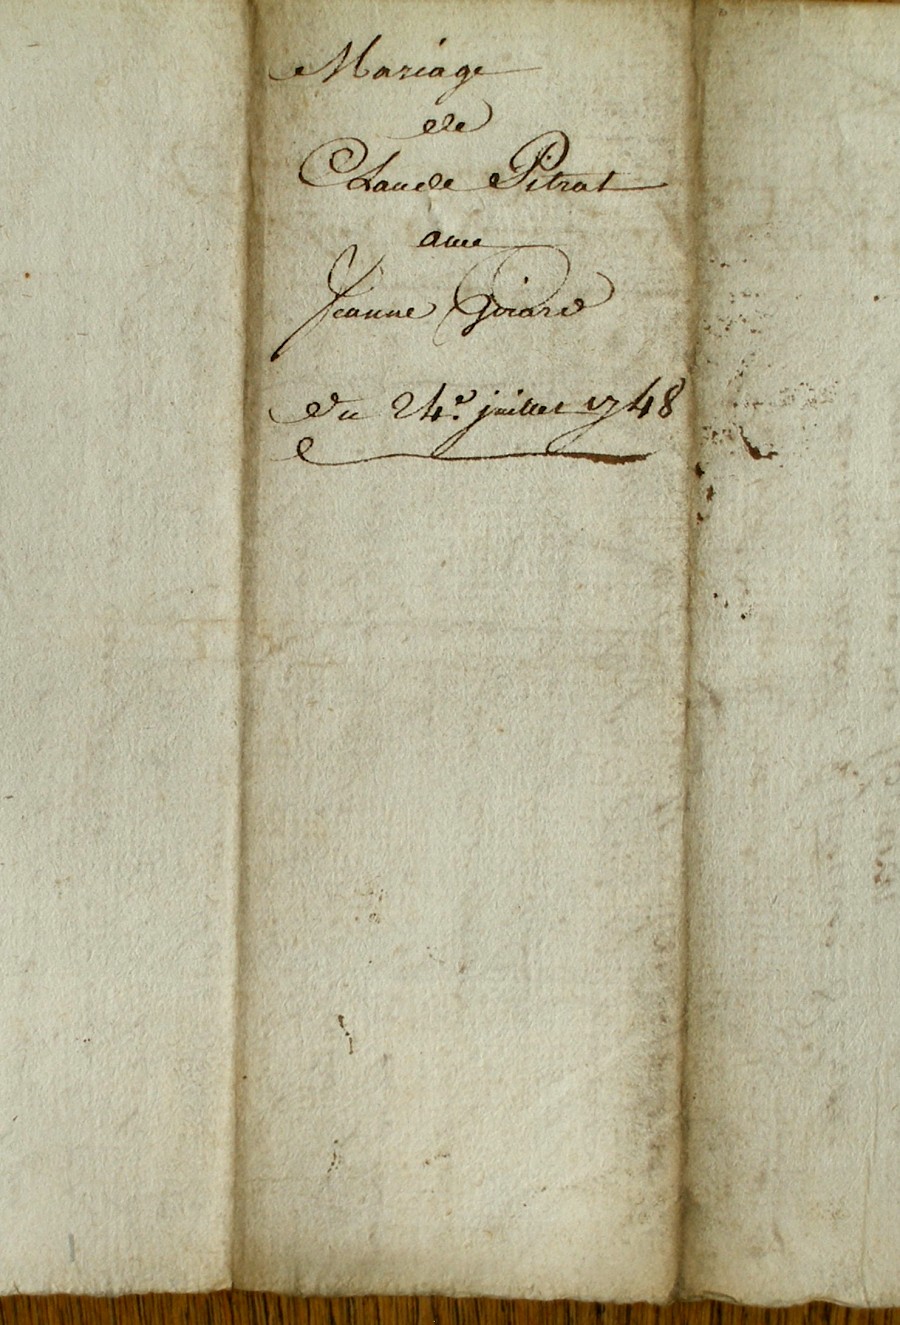 Mariage
de
Claude Pitrat
avec
Jeanne Girard
Du 24e. juillet 1748